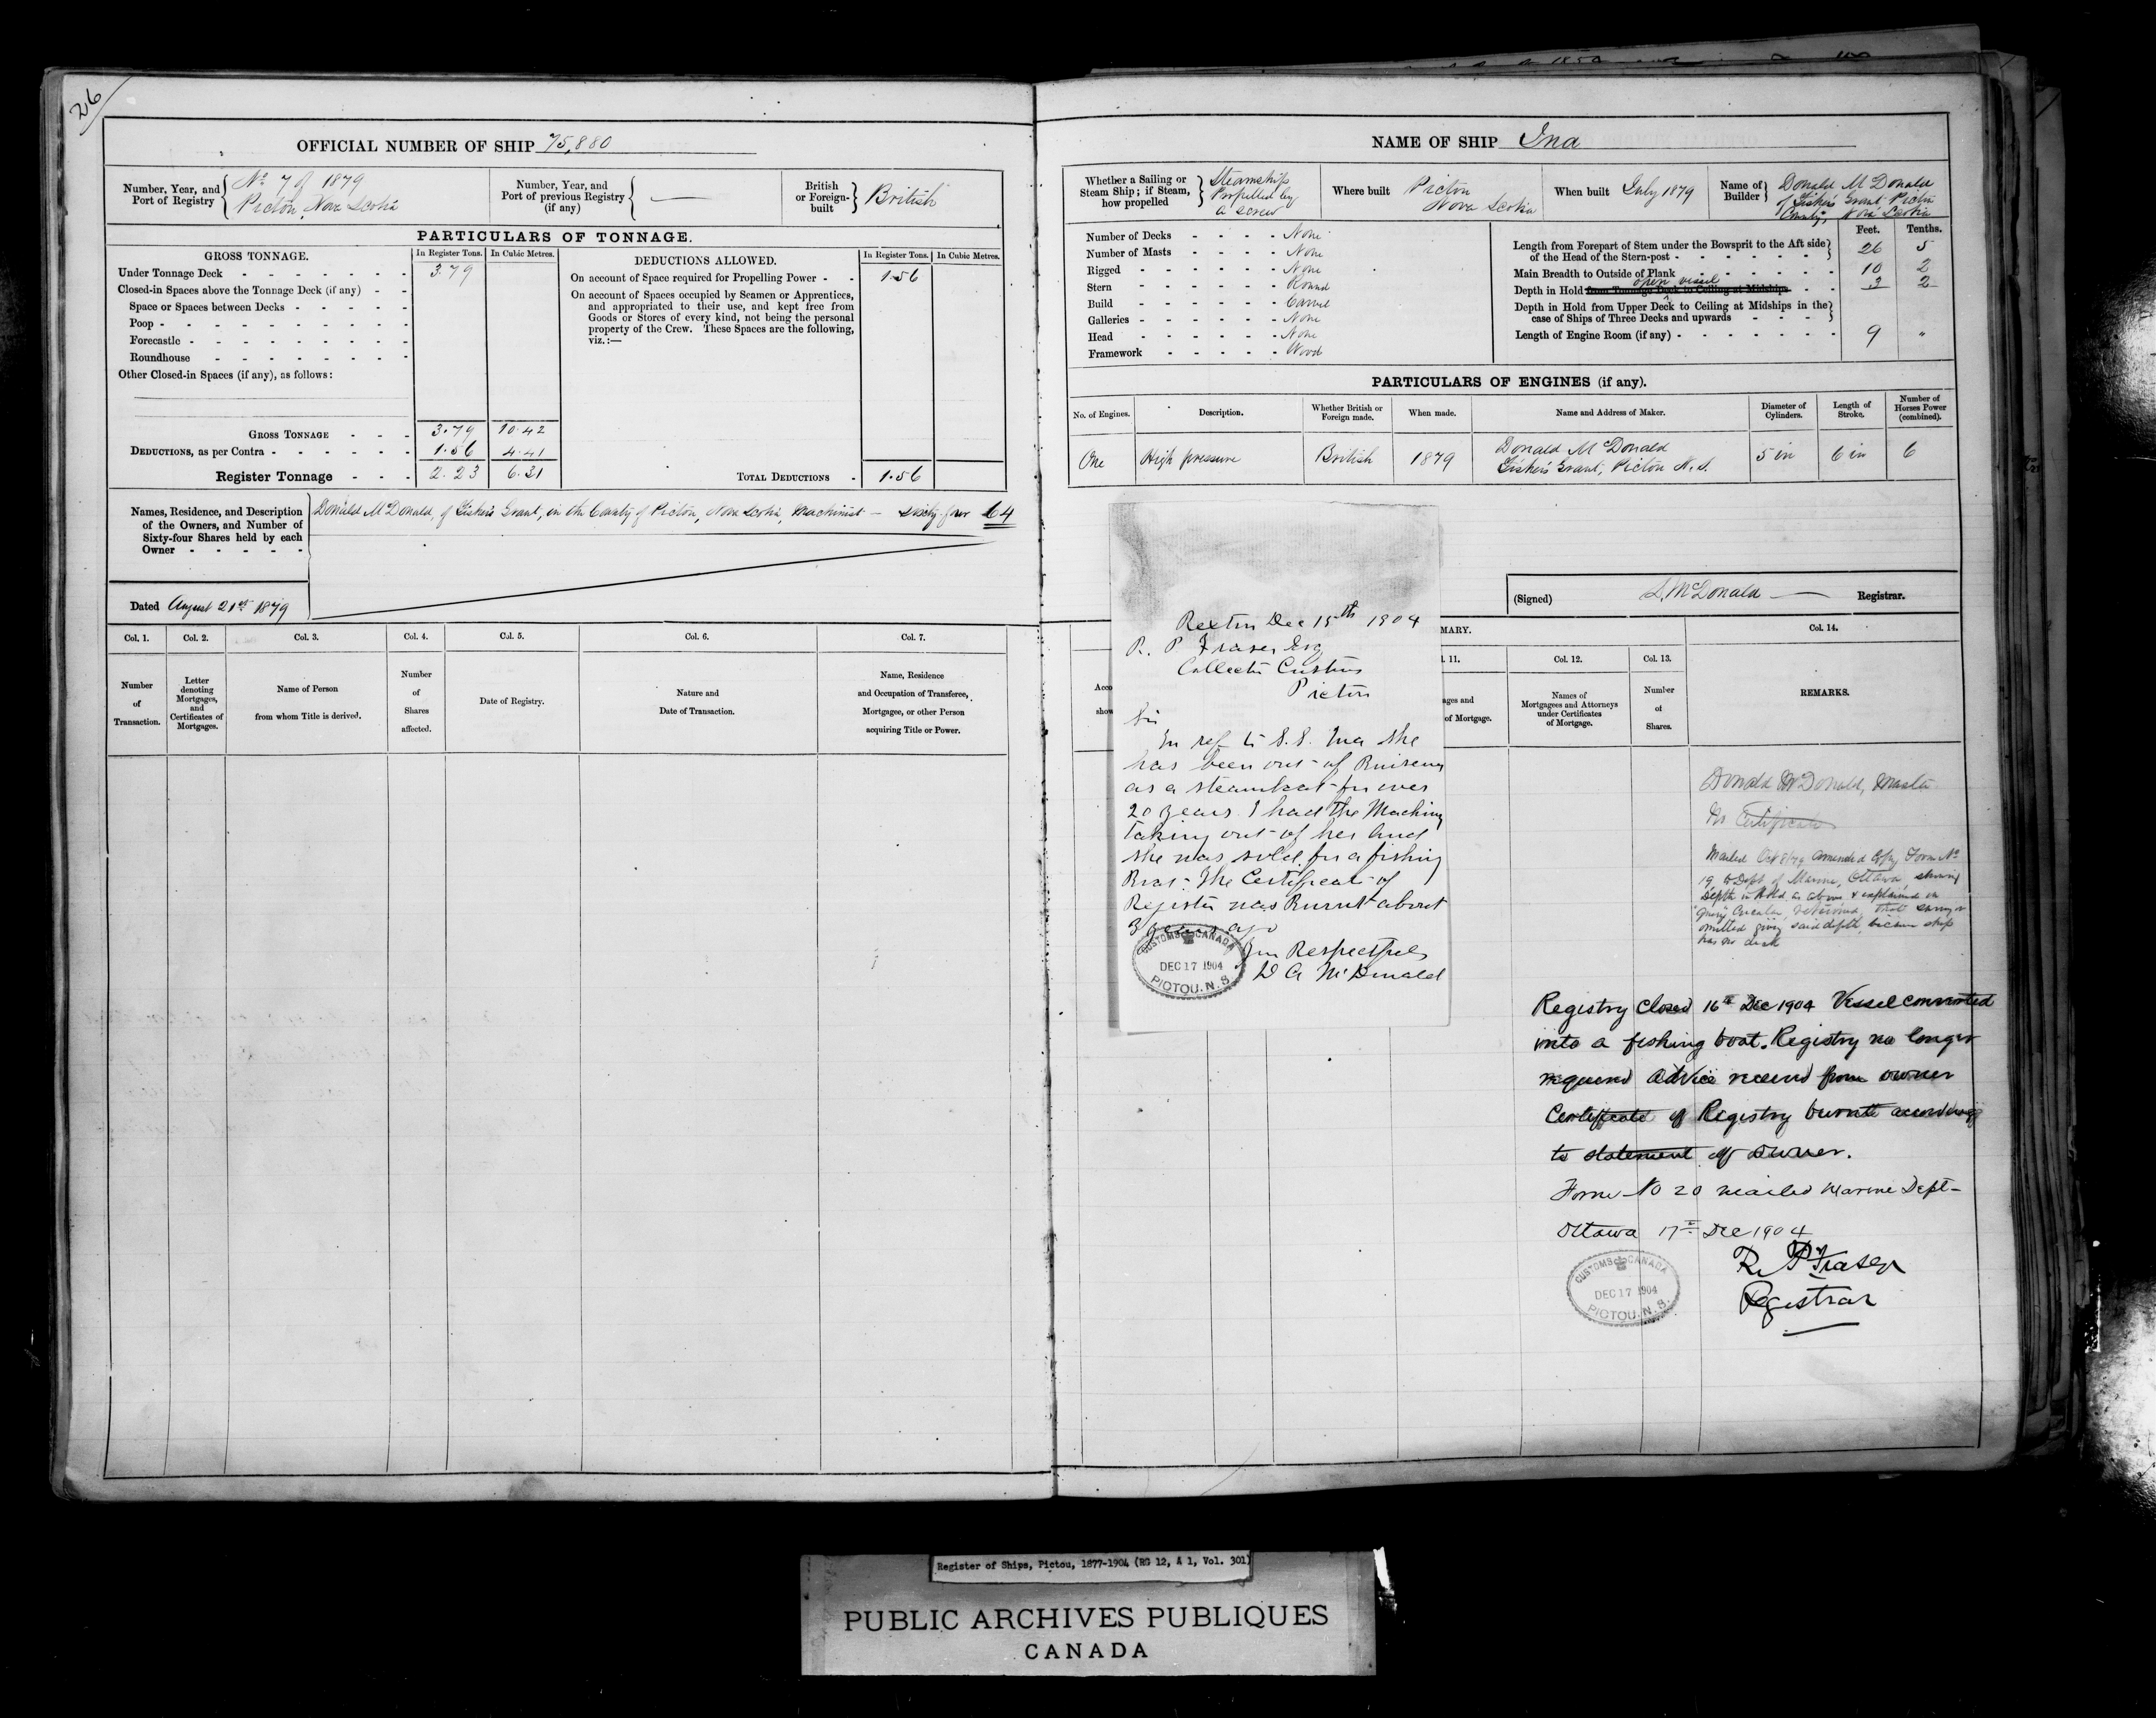 26
OFFICIAL NUMBER OF SHIP 75,880
Number, Year, and Port of Registry
No 7 of 1879
Pictou, Nova Scotia
Number, Year, and Port of previous Registry (if any)
—
British or Foreign-built
British
PARTICULARS OF TONNAGE.
GROSS TONNAGE.
In Register Tons.
In Cubic Metres.
Under Tonnage Deck - - - - - - - 3.79
Closed-in Spaces above the Tonnage Deck (if any) - -
Space or Spaces between Decks - - - - -
Poop - - - - - - - - - -
Forecastle - - - - - - - - -
Roundhouse - - - - - - - -
Other Closed-in Spaces (if any), as follows:
GROSS TONNAGE - - - 3.79 10.42
DEDUCTIONS, as per Contra - - - - - - 1.56 4.41
Register Tonnage - - - 2.23 6.21
DEDUCTIONS ALLOWED.
In Register Tons.
In Cubic Metres.
On account of Space required for Propelling Power - - 1.56
On account of Spaces occupied by Seamen or Apprentices,
and appropriated to their use, and kept free from
Goods or Stores of every kind, not being the personal
property of the Crew. These Spaces are the following,
viz.:—
TOTAL DEDUCTIONS - 1.56
Names, Residence, and Description
of the Owners, and Number of
Sixty-four Shares held by each
Owner - - - - -
Donald McDonald, of Fisher's Grant, in the County of Pictou, Nova Scotia, Machinist — Sixty-four 64
Dated August 21st 1879
Col. 1.
Number
of
Transaction.
Col. 2.
Letter
denoting
Mortgages,
and
Certificates of
Mortgages.
Col. 3.
Name of Person
from whom Title is derived.
Col. 4.
Number
of
Shares
affected.
Col. 5.
Date of Registry.
Col. 6.
Nature and
Date of Transaction.
Col. 7.
Name, Residence
and Occupation of Transferee,
Mortgagee, or other Person
acquiring Title or Power.
NAME OF SHIP Ina
Whether a Sailing or
Steam Ship; if Steam,
how propelled
Steamship
Propelled by
a screw
Where built
Pictou
Nova Scotia
When built July 1879
Name of
Builder
Donald McDonald
of Fisher's Grant, Pictou
County, Nova Scotia
Number of Decks - - - - None
Number of Masts - - - - None
Rigged - - - - - None
Stern - - - - - Round
Build - - - - - Carvel
Galleries - - - - - None
Head - - - - - None
Framework - - - - - Wood
Feet.
Tenths.
Length from Forepart of Stem under the Bowsprit to the Aft side
of the Head of the Stern-post - - - - - - - 26 5
Main Breadth to Outside of Plank - - - - - - 10 2
open vessel
Depth in Hold from Tonnage Deck to Ceiling at Midships - - 3 2
Depth in Hold from Upper Deck to Ceiling at Midships in the
case of Ships of Three Decks and upwards - - - -
Length of Engine Room (if any) - - - - - - - 9 "
PARTICULARS OF ENGINES (if any).
No. of Engines.
Description.
Whether British or
Foreign made.
When made.
Name and Address of Maker.
Diameter of
Cylinders.
Length of
Stroke.
Number of
Horses Power
(combined).
One
High pressure
British
1879
Donald McDonald
Fisher's Grant, Pictou N.S.
5 in
6 in
6
(Signed) D. McDonald — Registrar.
Rexton Dec 15th 1904
R. P. Fraser Esq
Collector Customs
Pictou
Sir
In ref to S.S. Ina she
has been out of Buiseny
as a steamboat for over
20 years. I had the Machiny
taking out of her and
she was sold for a fishing
Boat. The Certificate of
Register was Burnt about
3 years ago
Yrs Respectfuly
D A McDonald
CUSTOMS CANADA
DEC 17 1904
PICTOU. N. S.
MARY.
Acco
show
l. 11.
ages and
of Mortgage.
Col. 12.
Names of
Mortgagees and Attorneys
under Certificates
of Mortgage.
Col. 13.
Number
of
Shares.
Col. 14.
REMARKS.
Donald McDonald, Master
No Certificate
Mailed Oct 8/79 amended Copy Form No
19 to Dept of Marine, Ottawa, showing
Depth in Hold as above & explained on
"Query" Circular, returned, that Surveyor
omitted giving said depth, because ship
has no deck
Registry Closed 16th Dec 1904 Vessel converted
into a fishing boat. Registry no longer
required Advice received from owner
Certificate of Registry burnt according
to statement of Owner.
Form No 20 mailed Marine Dept—
Ottawa 17th Dec 1904
R. P Fraser
Registrar
CUSTOMS CANADA
DEC 17 1904
PICTOU. N. S.
Register of Ships, Pictou, 1877-1904 (RG 12, A 1, Vol. 301)
PUBLIC ARCHIVES PUBLIQUES
CANADA